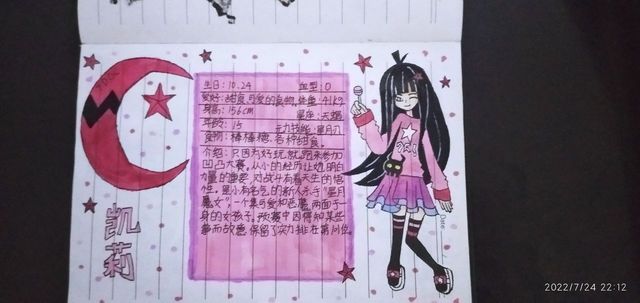 生日：10.24 血型：O
爱好：甜食，可爱的食物，体重：41kg
身高：156cm 星座：天蝎
年龄：15 元力技能：星月刃
食物：棒棒糖、各种甜食
介绍：只因为好玩就跑来参加
凹凸大赛，从小的经历让她明白
力量的重要，对战斗有着天生的悟
性。是小有名气的新人杀手"星月
魔女"，一个集可爱和恶魔，两面于一
身的女孩子，预赛中因得知某些
事而故意保留了实力排在第
凯莉
Date
2022/7/24 22:12